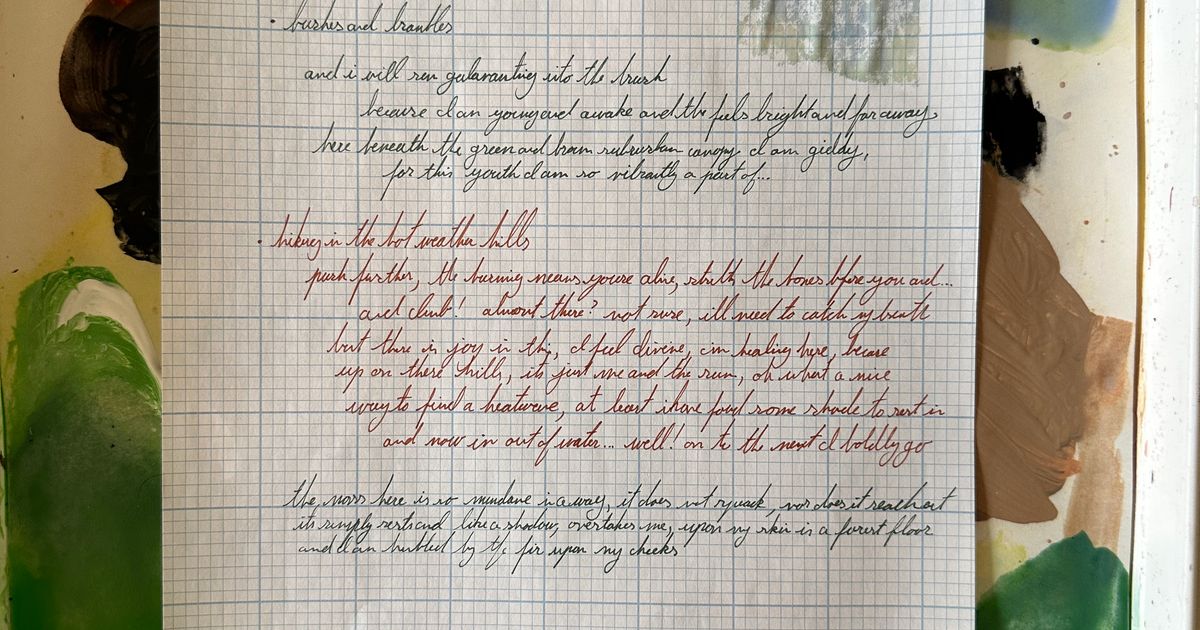 • bushes and brambles
and i will run galavanting into the brush
because I am young and awake and the feels bright and far away,
here beneath the green and brown suburban canopy I am giddy,
for this youth I am so vibrantly a part of...
• hiking in the hot weather hills
push further, the burning means youre alive, the bones before you and...
and climb! almost there? not sure, ill need to catch my breath
but there is joy in this, I feel divine, im healing here, because
up on these hills, its just me and the sun, oh what a nice
way to find a heatwave, at least i have found some shade to rest in
and now im out of water... well! on to the next I boldly go
the moss here is so mundane in a way, it does not, nor does it reach out
its simply rests and like a shadow, overtakes me, upon my skin is a forest floor
and I am humbled by the fir upon my cheeks